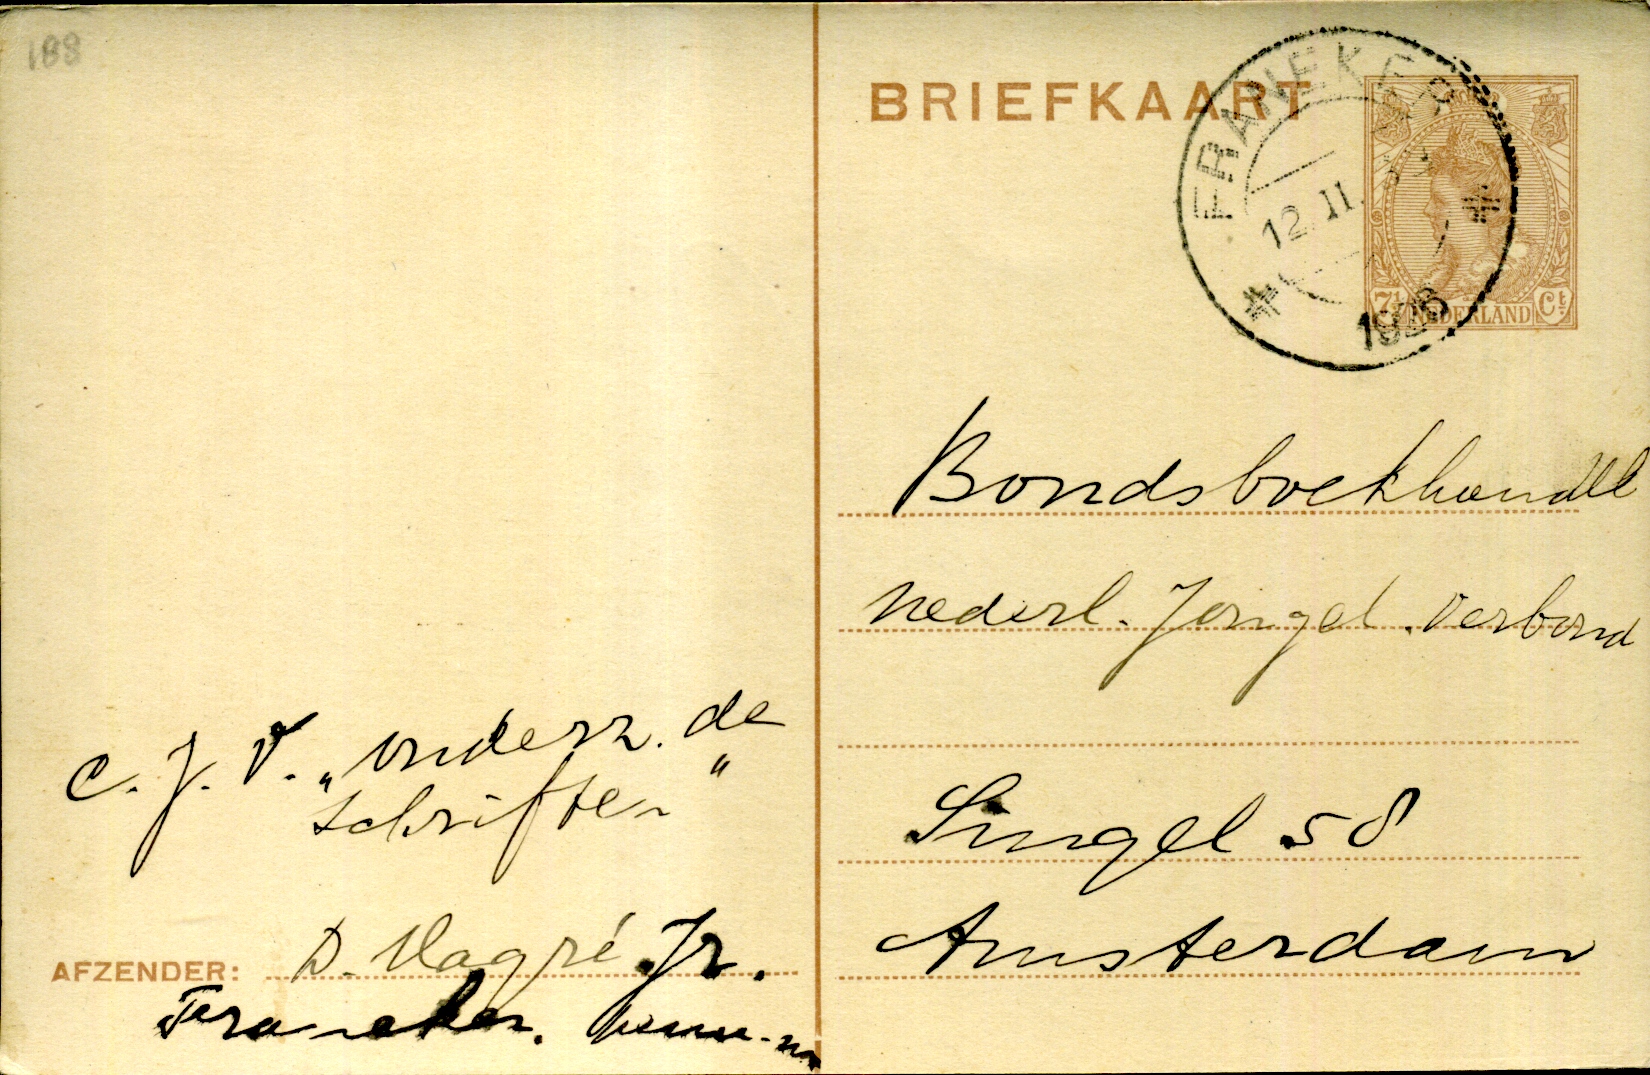 188
BRIEFKAART
FRANEKER
12.II.
1926
7½ NEDERLAND Ct
Bondsboekhandel
Nederl. Jongel. Verbond
Singel 58
Amsterdam
C. J. V. „Onderz. de
Schriften"
AFZENDER: D. Magré Jr.
Franeker.